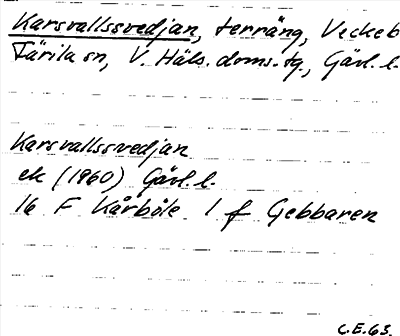 Karsvallssvedjan, terräng, Veckeb
Färila sn, V. Häls. doms. tg., Gävl. l.
Karsvallssvedjan
ek (1960) Gävl. l.
16 F Kårböle 1 f Gebbaren
C.E.63.